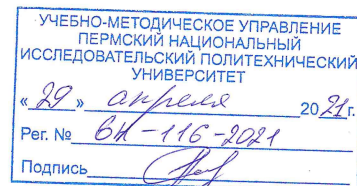 УЧЕБНО-МЕТОДИЧЕСКОЕ УПРАВЛЕНИЕ
ПЕРМСКИЙ НАЦИОНАЛЬНЫЙ
ИССЛЕДОВАТЕЛЬСКИЙ ПОЛИТЕХНИЧЕСКИЙ
УНИВЕРСИТЕТ
« 29 » апреля 2021 г.
Рег. № вк-116-2021
Подпись